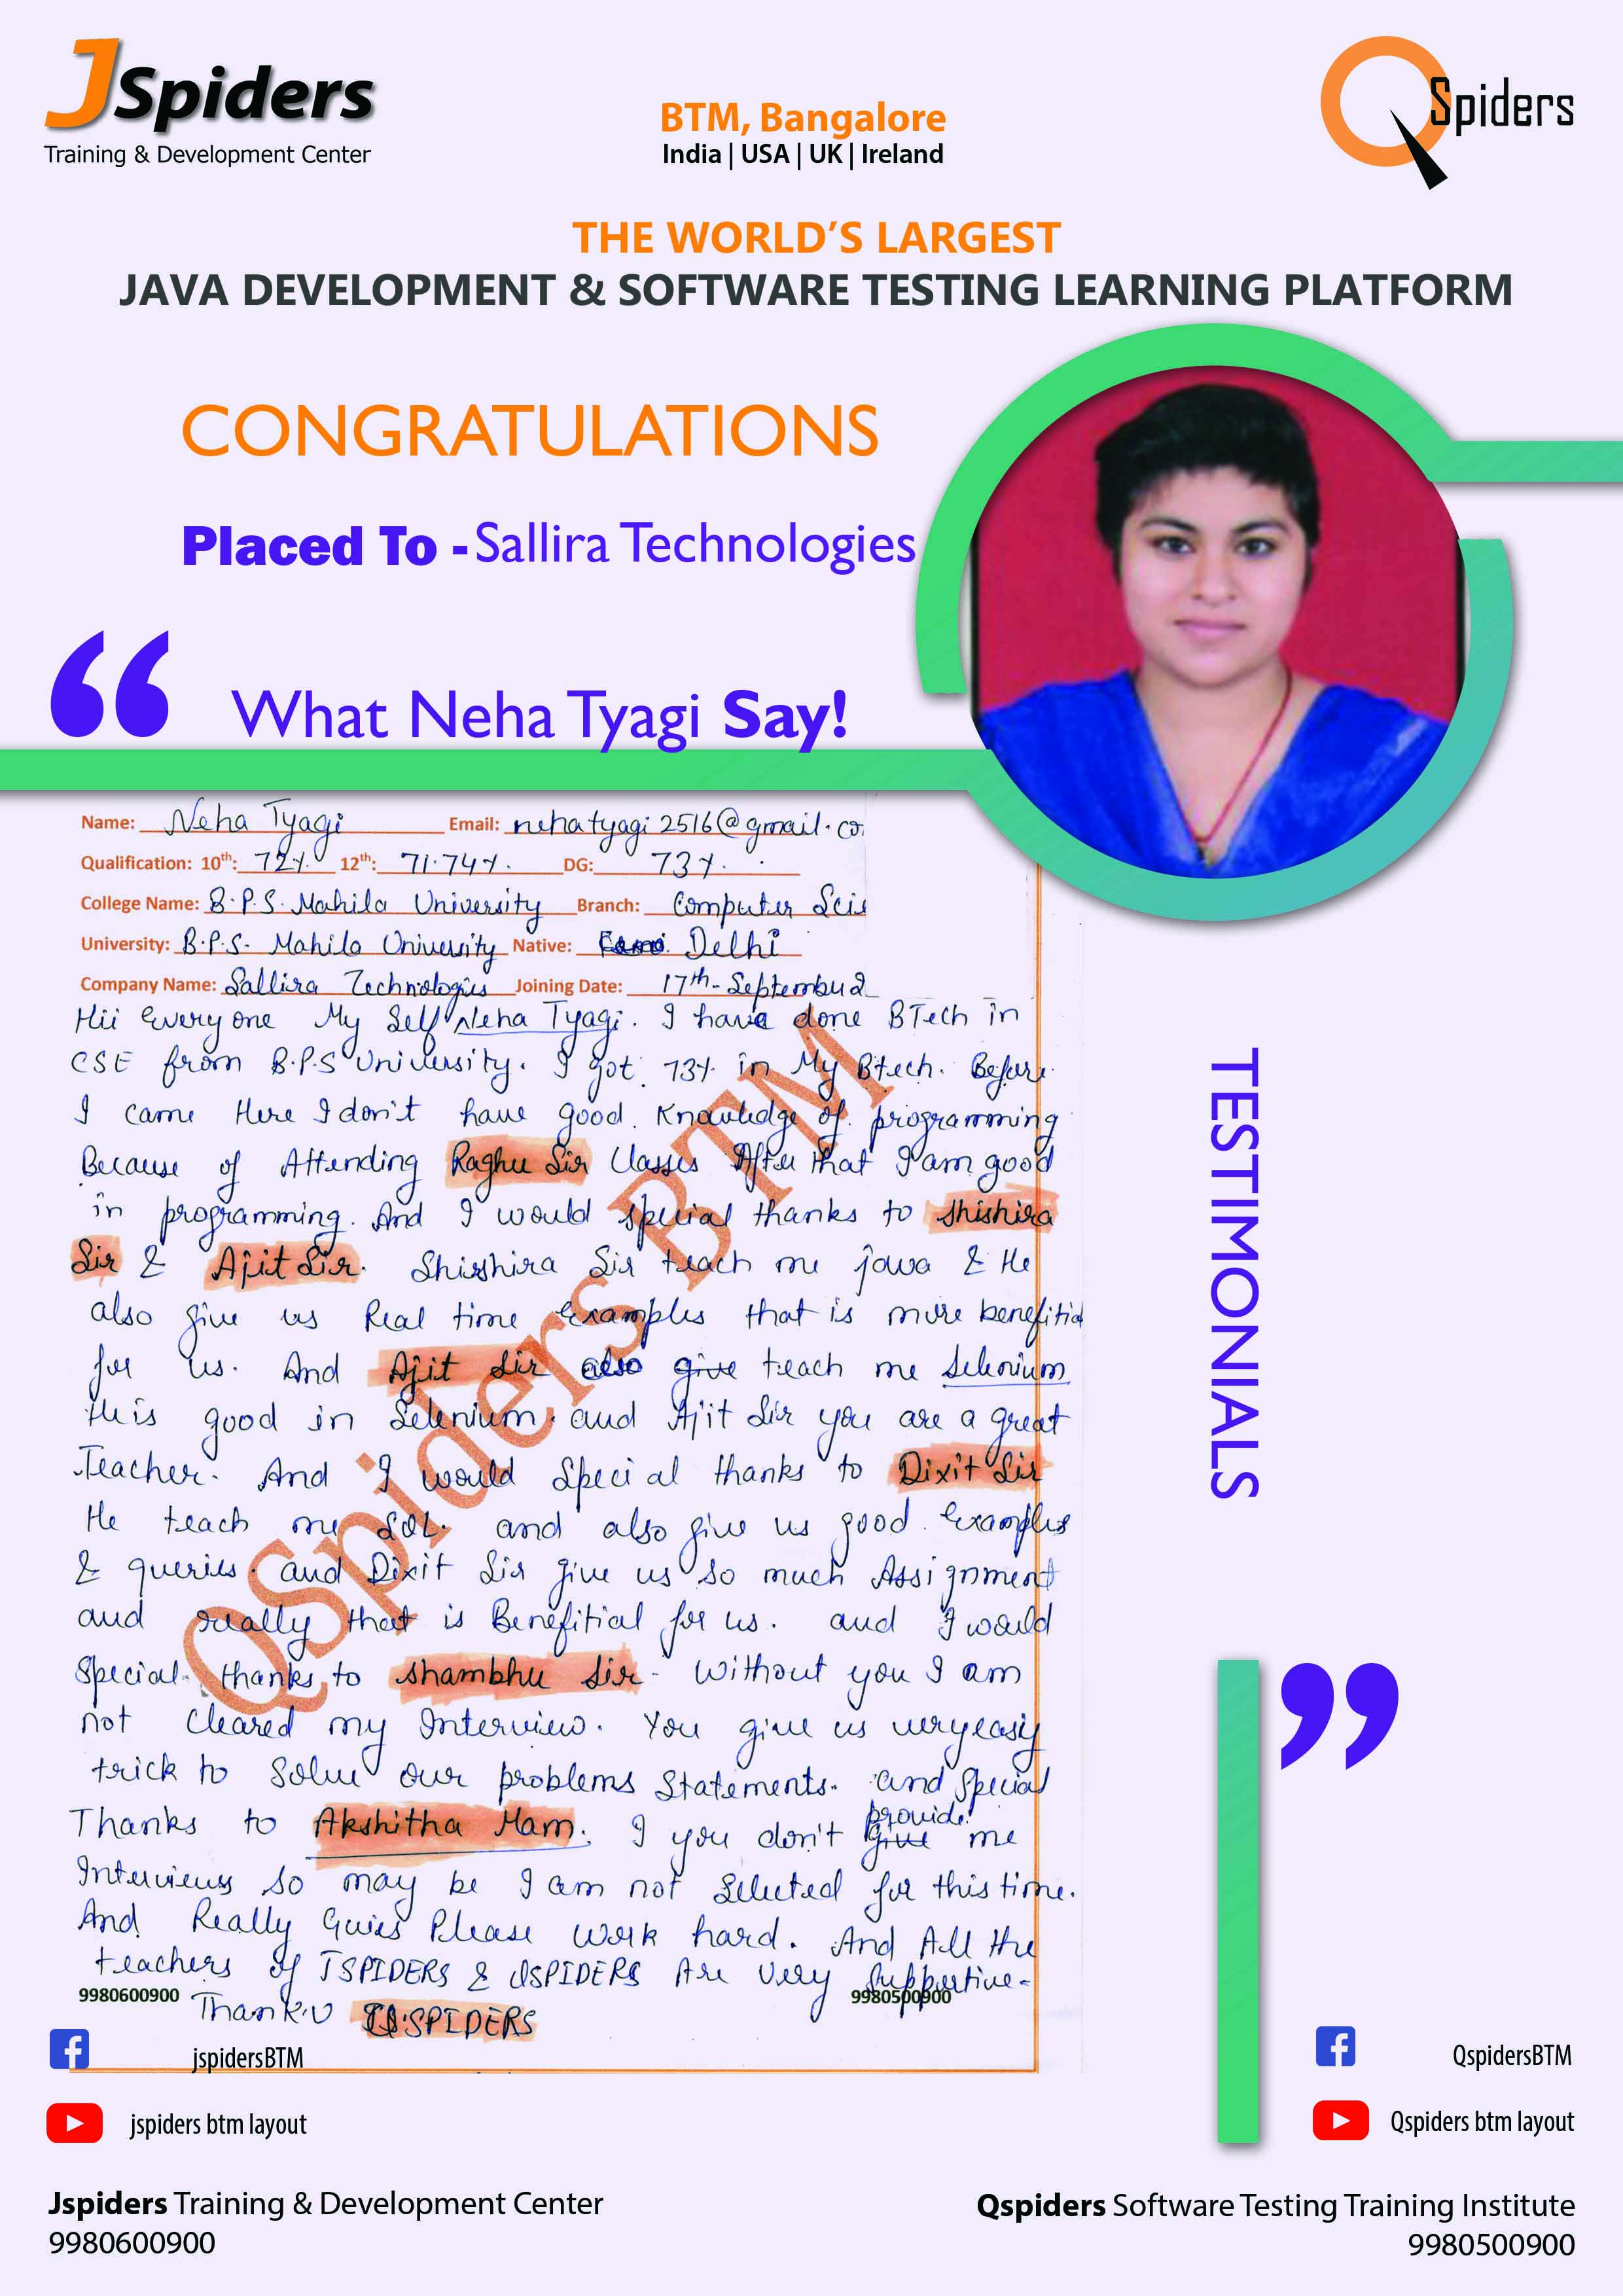 JSpiders
Training & Development Center
BTM, Bangalore
India | USA | UK | Ireland
QSpiders
THE WORLD'S LARGEST
JAVA DEVELOPMENT & SOFTWARE TESTING LEARNING PLATFORM
CONGRATULATIONS
Placed To - Sallira Technologies
“
What Neha Tyagi Say!
Name: Neha Tyagi Email: nehatyagi2516@gmail.co
Qualification: 10th: 72%. 12th: 71.74%. DG: 73%.
College Name: B.P.S. Mahila University Branch: Computer Scie
University: B.P.S. Mahila University Native: Delhi
Company Name: Sallira Technologies Joining Date: 17th-September 2
Hii Everyone My Self Neha Tyagi. I have done BTech in
CSE from B.P.S University. I got 73% in My Btech. Before
I came Here I don't have good Knowledge of programming
Because of Attending Raghu Sir Classes After that I am good
in programming. And I would special thanks to Shishira
Sir & Ajit Sir. Shishira Sir teach me java & He
also give us Real time Examples that is more benefitial
for us. And Ajit Sir also give teach me Selenium
He is good in Selenium. and Ajit Sir you are a great
Teacher. And I would Special thanks to Dixit Sir
He teach me SQL. and also give us good Examples
& queries. and Dixit Sir give us so much Assignment
and really that is Benefitial for us. and I would
Special thanks to Shambhu Sir - Without you I am
not Cleared my Interview. You give us very easy
trick to Solve our problems Statements. and Special
Thanks to Akshitha Mam. I you don't give provide me
Interviews so may be I am not Selected for this time.
And Really Guies Please Work hard. And All the
teachers of JSPIDERS & QSPIDERS Are very Supportive-
Thank.U QSPIDERS
QSpiders BTM
9980600900
9980500900
TESTIMONIALS
”
jspidersBTM
QspidersBTM
jspiders btm layout
Qspiders btm layout
Jspiders Training & Development Center
9980600900
Qspiders Software Testing Training Institute
9980500900